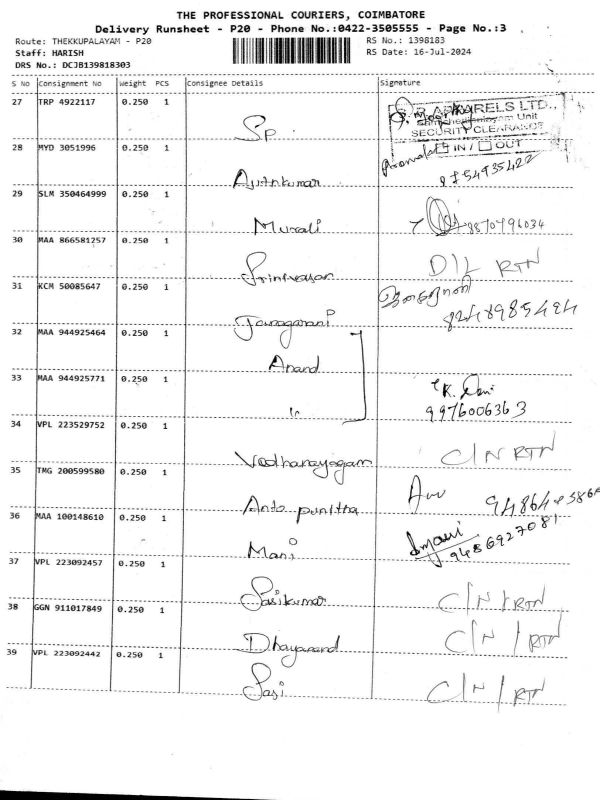 THE PROFESSIONAL COURIERS, COIMBATORE
Delivery Runsheet - P20 - Phone No.:0422-3505555 - Page No.:3
Route: THEKKUPALAYAM - P20
RS No.: 1398183
Staff: HARISH
RS Date: 16-Jul-2024
DRS No.: DCJB139818303
S No Consignment No Weight PCS Consignee Details Signature
27 TRP 4922117 0.250 1 Sp
S.P.APPARELS LTD.,
Unit
SECURITY CLEARANCE
IN / OUT
28 MYD 3051996 0.250 1 Ajithkumar
8754935422
29 SLM 350464999 0.250 1 Murali 8870496034
30 MAA 866581257 0.250 1 Srinivasan D/L RTN
31 KCM 50085647 0.250 1
8248985424
32 MAA 944925464 0.250 1 Anand
33 MAA 944925771 0.250 1 K. 
9976006363
34 VPL 223529752 0.250 1 Vedhanayagam C/N RTN
35 TMG 200599580 0.250 1 Anto punitha
36 MAA 100148610 0.250 1 Mani
9486927081
37 VPL 223092457 0.250 1 Sasikumar C/N/RTN
38 GGN 911017849 0.250 1 Dhayanand C/N/RTN
39 VPL 223092442 0.250 1 Sasi C/N/RTN